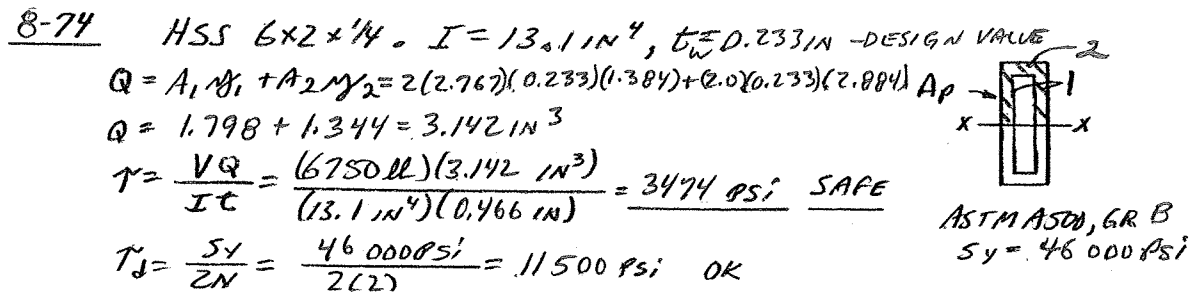 8-74 HSS 6x2x1/4. I = 13.1 IN⁴, t_w = 0.233 IN - DESIGN VALUE
Q = A₁y₁ + A₂y₂ = 2(2.767)(0.233)(1.384)+(2.0)(0.233)(2.884)
Q = 1.798 + 1.344 = 3.142 IN³
τ = VQ/It = (6750 lb)(3.142 IN³)/(13.1 IN⁴)(0.466 IN) = 3474 PSi SAFE
τd = Sy/2N = 46 000PSi/2(2) = 11500 PSi OK
2
Ap 1
X X
ASTM A500, GR B
Sy = 46 000 PSi